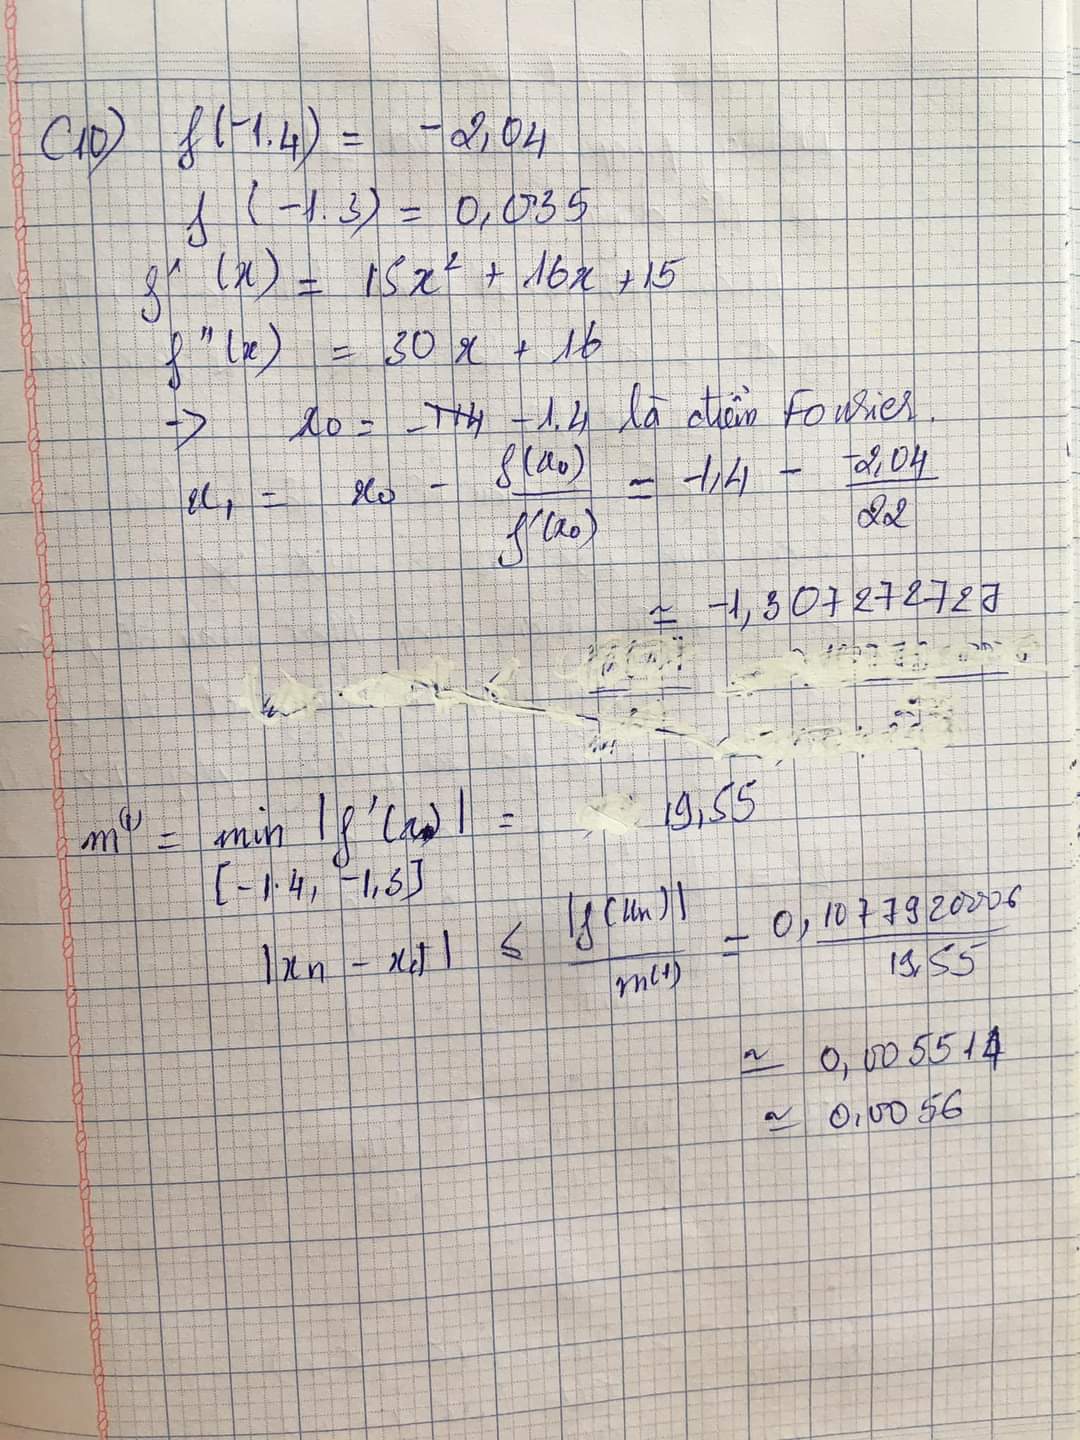 (10) f(-1.4) = -2,04
f(-1.3) = 0,035
f'(x) = 15x² + 16x + 15
f"(x) = 30x + 16
→ x₀ = -1.4 là điểm Fourier.
x₁ = x₀ - f(x₀)/f'(x₀) = -1,4 - -2,04/22
≃ -1,307272727
m⁽¹⁾ = min |f'(x)| = 19,55
[-1.4, -1,3]
|xn - x*| ≤ |f(xn)|/m⁽¹⁾ = 0,1077920006/19.55
≃ 0,005514
≃ 0,0056